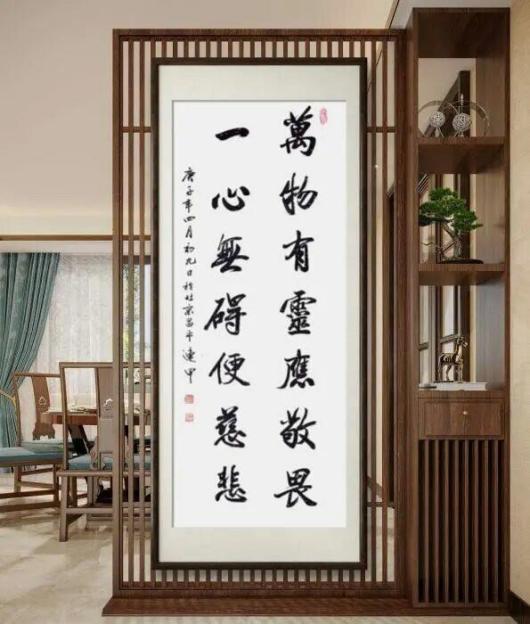 萬物有靈應敬畏
一心無碍便慈悲
庚子年四月初九日於北京昌平 蓮甲